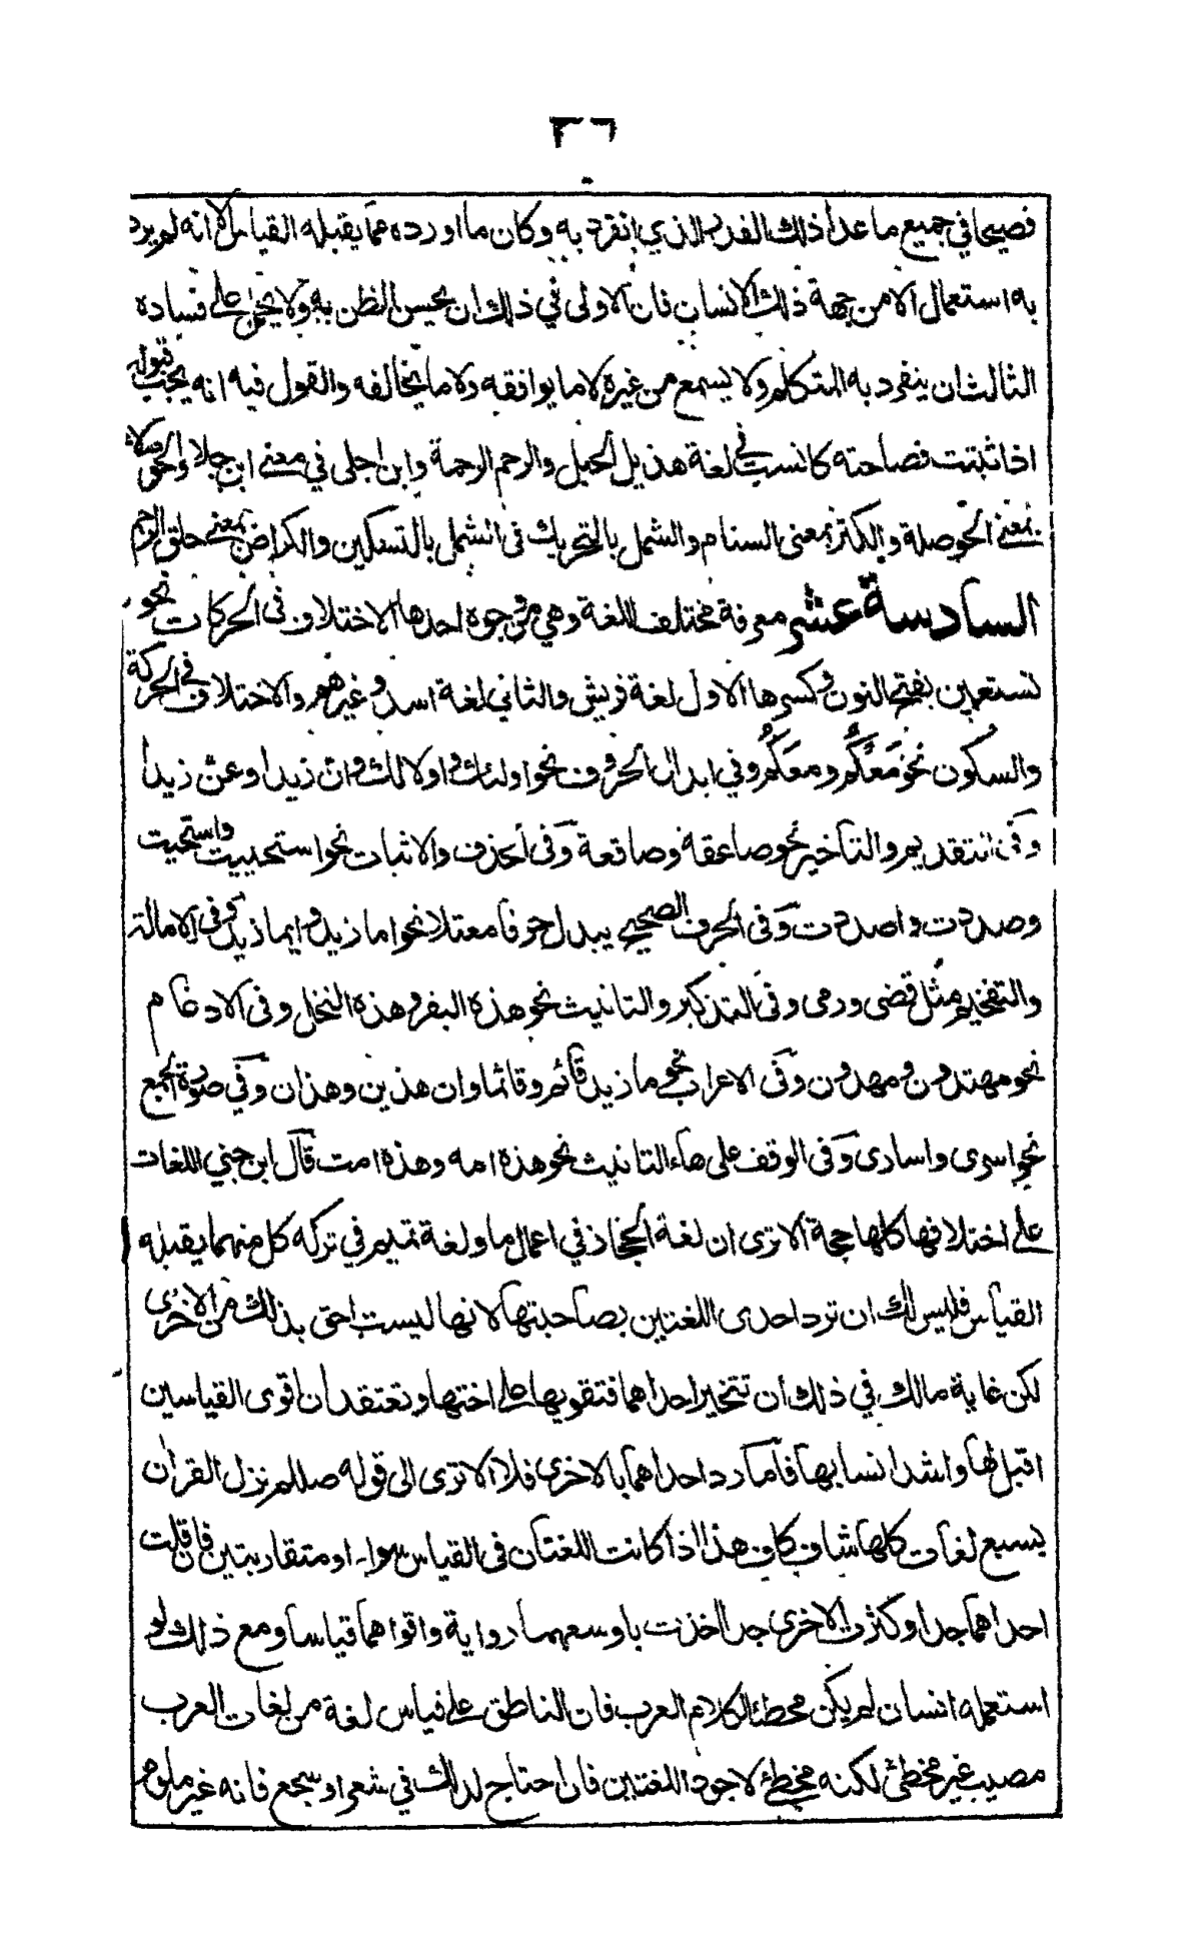 ٣٦
فصيحا في جميع ما عدا ذلك القدر الذي انفرد به وكان ما اورده مما يقبله القياس الا انه لم يرد
به استعمال الا من جهة ذلك الانسان فان الاولى في ذلك ان يحسن الظن به ولا يحمل على فساده
الثالث ان ينفرد به المتكلم ولا يسمع من غيره لا ما يوافقه ولا ما يخالفه والقول فيه انه يجب قبوله
اذا ثبتت فصاحته كانست في لغة هذيل الحبل والرحم الرحمة وابن اجلى في معنى ابن جلا والحوصلاء
بمعنى الحوصلة والكتر بمعنى السنام والشمل بالتحريك في الشمل بالتسكين والكراض بمعنى حلق الرحم
السادسة عشر معرفة مختلف اللغة وهي من وجوه احدها الاختلاف في الحركات نحو
نستعين بفتح النون وكسرها الاول لغة قريش والثاني لغة اسد وغيرهم والاختلاف في الحركة
والسكون نحو مَعَكُم ومعْكُم وفي ابدال الحروف نحو اولئك واولالك وان زيدا وعن زيدا
وفي التقديم والتاخير نحو صاعقة وصاقعة وفي الحذف والاثبات نحو استحييت واستحيت
وصددت واصددت وفي الحرف الصحيح يبدل حرفا معتلا نحو اما زيد وايما زيد وفي الامالة
والتفخيم مثل قضى ورمى وفي التذكير والتانيث نحو هذه البقر وهذه النخل وفي الادغام
نحو مهتدون ومهدون وفي الاعراب نحو ما زيد قائم وقائما وان هذين وهذان وفي صورة الجمع
نحو اسرى واسارى وفي الوقف على هاء التانيث نحو هذه امه وهذه امت قال ابن جني اللغات
على اختلافها كلها حجة الا ترى ان لغة الحجاز في اعمال ما ولغة تميم في تركه كل منهما يقبله
القياس فليس لك ان ترد احدى اللغتين بصاحبتها لانها ليست احق بذلك من الاخرى
لكن غاية مالك في ذلك ان تتخير احداهما فتقويها على اختها وتعتقد ان اقوى القياسين
اقبل لها واشد انسا بها فاما رد احداهما بالاخرى فلا الا ترى الى قوله صللم نزل القران
بسبع لغات كلها شاف كاف هذا اذا كانت اللغتان في القياس سواء او متقاربتين فان قلت
احداهما جدا وكثرت الاخرى جدا اخذت باوسعهما رواية واقواهما قياسا ومع ذلك لو
استعمله انسان لم يكن مخطئا لكلام العرب فان الناطق على قياس لغة من لغات العرب
مصيب غير مخطئ لكنه مخطئ لاجود اللغتين فان احتاج لذلك في شعر او سجع فانه غير ملوم